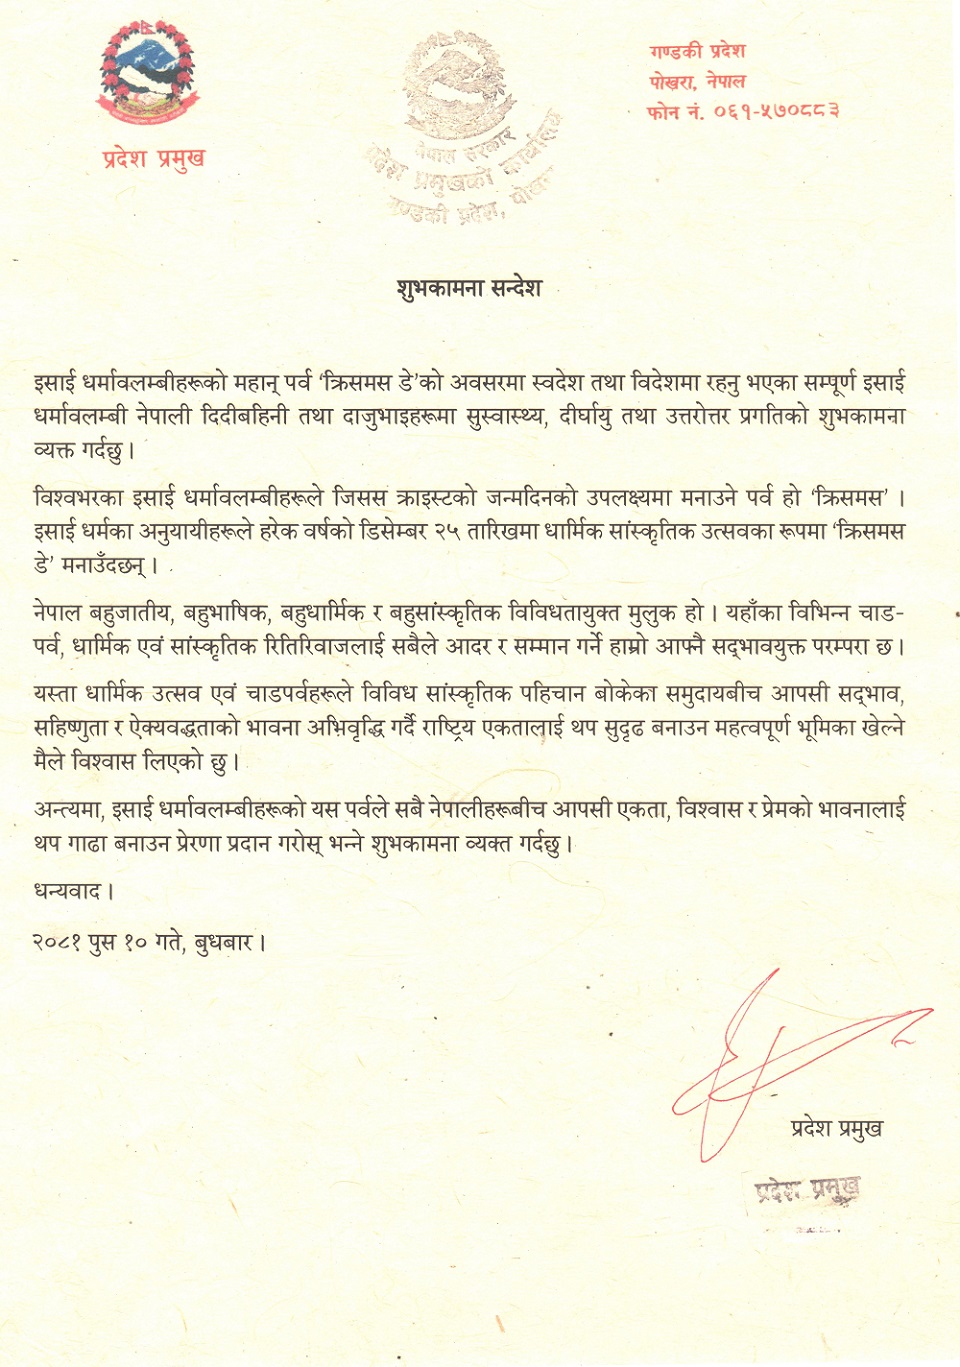 प्रदेश प्रमुख
नेपाल सरकार
प्रदेश प्रमुखको कार्यालय
गण्डकी प्रदेश, पोखरा
गण्डकी प्रदेश
पोखरा, नेपाल
फोन नं. ०६१-५७०८८३
शुभकामना सन्देश
इसाई धर्मावलम्बीहरूको महान् पर्व ‘क्रिसमस डे’को अवसरमा स्वदेश तथा विदेशमा रहनु भएका सम्पूर्ण इसाई
धर्मावलम्बी नेपाली दिदीबहिनी तथा दाजुभाइहरूमा सुस्वास्थ्य, दीर्घायु तथा उत्तरोत्तर प्रगतिको शुभकामना
व्यक्त गर्दछु ।
विश्वभरका इसाई धर्मावलम्बीहरूले जिसस क्राइस्टको जन्मदिनको उपलक्ष्यमा मनाउने पर्व हो ‘क्रिसमस’ ।
इसाई धर्मका अनुयायीहरूले हरेक वर्षको डिसेम्बर २५ तारिखमा धार्मिक सांस्कृतिक उत्सवका रूपमा ‘क्रिसमस
डे’ मनाउँदछन् ।
नेपाल बहुजातीय, बहुभाषिक, बहुधार्मिक र बहुसांस्कृतिक विविधतायुक्त मुलुक हो । यहाँका विभिन्न चाड-
पर्व, धार्मिक एवं सांस्कृतिक रितिरिवाजलाई सबैले आदर र सम्मान गर्ने हाम्रो आफ्नै सद्‌भावयुक्त परम्परा छ ।
यस्ता धार्मिक उत्सव एवं चाडपर्वहरूले विविध सांस्कृतिक पहिचान बोकेका समुदायबीच आपसी सद्‌भाव,
सहिष्णुता र ऐक्यवद्धताको भावना अभिवृद्धि गर्दै राष्ट्रिय एकतालाई थप सुदृढ बनाउन महत्वपूर्ण भूमिका खेल्ने
मैले विश्वास लिएको छु ।
अन्त्यमा, इसाई धर्मावलम्बीहरूको यस पर्वले सबै नेपालीहरूबीच आपसी एकता, विश्वास र प्रेमको भावनालाई
थप गाढा बनाउन प्रेरणा प्रदान गरोस् भन्ने शुभकामना व्यक्त गर्दछु ।
धन्यवाद ।
२०८१ पुस १० गते, बुधबार ।
प्रदेश प्रमुख
प्रदेश प्रमुख